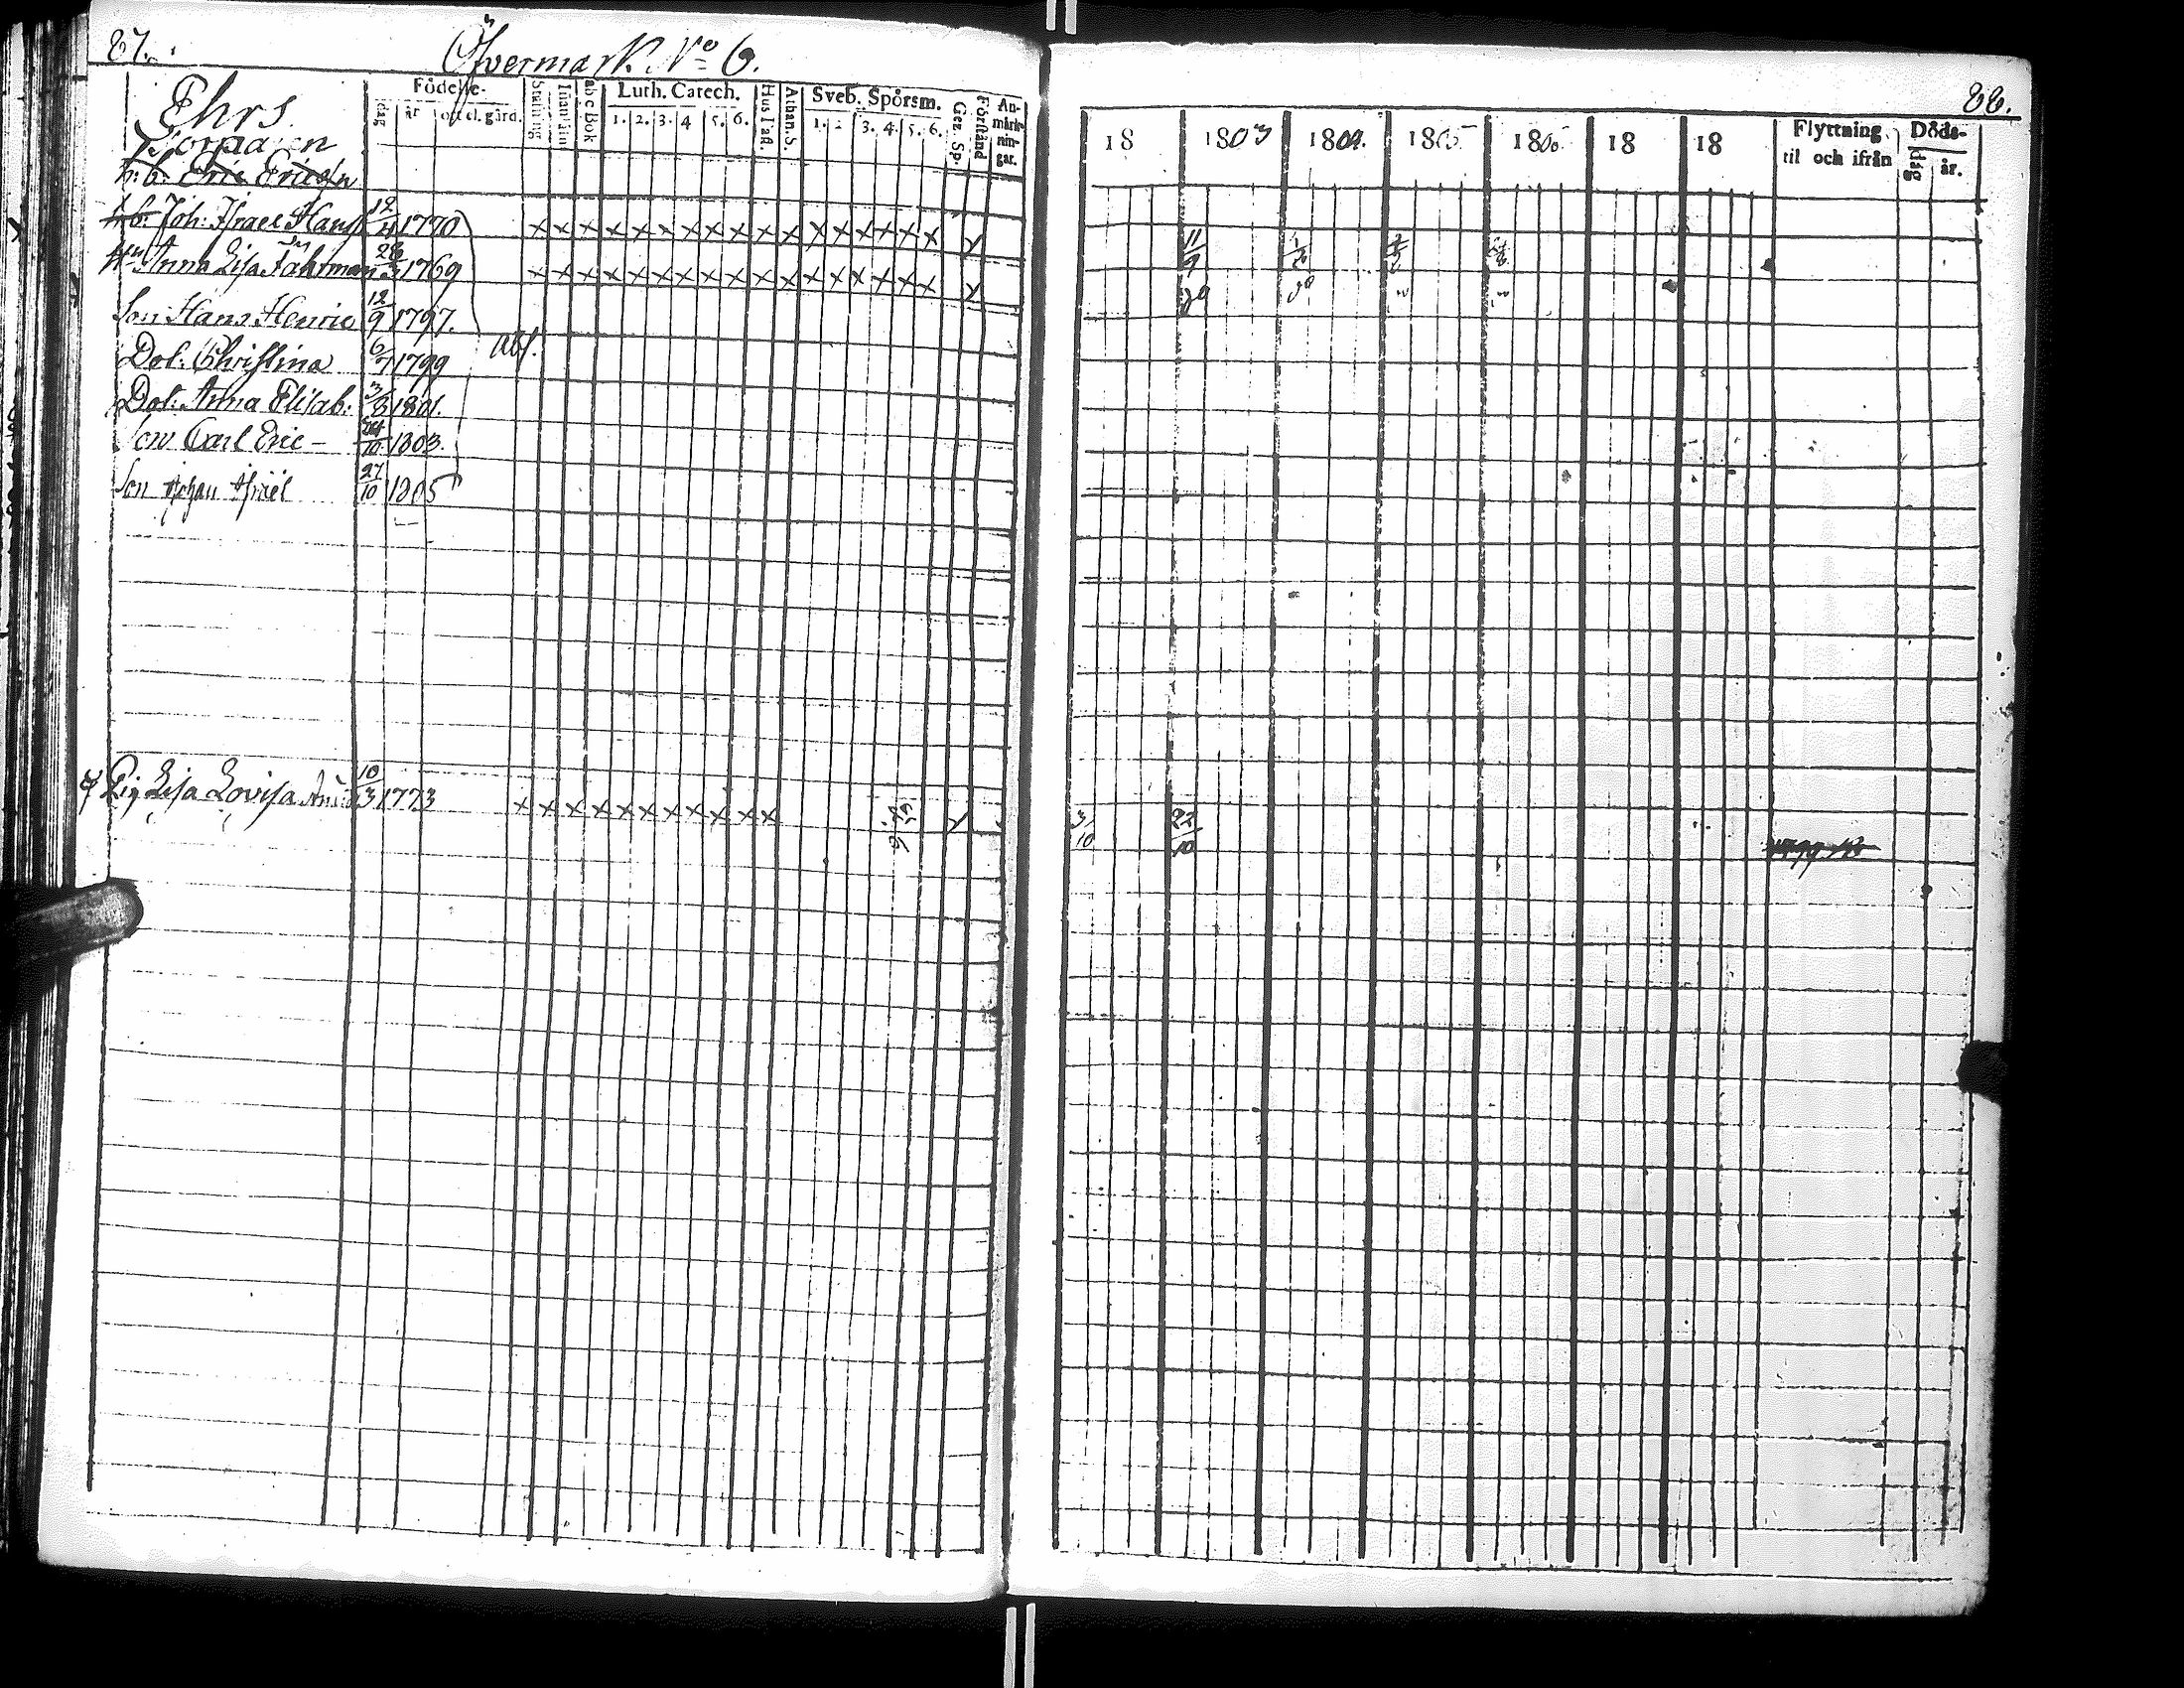 87.
Öfvermark N:o 6.
Ehrs
Torparen
h. b. Eric Ericss
Födelse-
dag
år
ort el. gård.
Stafning
Innanläsn
abc Bok
Luth. Catech.
1. 2. 3. 4 5. 6.
Hus Tafl.
Athan. S.
Sveb. Spörsm.
1. 2 3. 4. 5. 6.
Gez. Sp.
Förstånd
An-
märk-
nin-
gar.
h. b. Joh: Israel Hans 12/4 1770 x x x x x x x x x x x x x x x x x
Anna Lisa Fahrman 28/3 1769 x x x x x x x x x x x x x x x x x
Son Hans Henric 12/9 1797.
abs.
Dot: Christina 6/7 1799
Dot: Anna Elisab: 3/8 1801.
Son Carl Eric – 24/10 1803.
Son Johan Israël 27/10 1805
Pig Lisa Lovisa 10/3 1773 x x x x x x x x x x x
88.
18 1803 1804. 1805 180 18 18
Flyttning
til och ifrån
Döds-
dag
år.
11/9
3/10 22/10